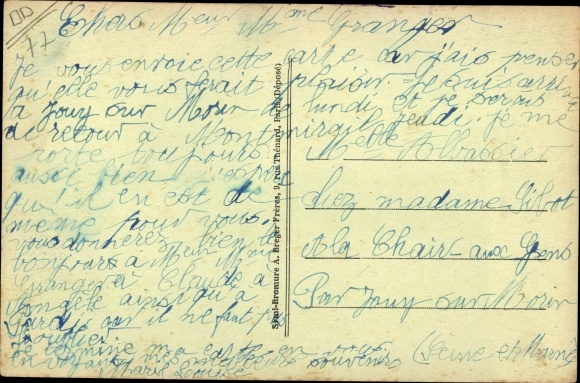 77
Chers Meur Mme Granger
Je vous envoie cette carte car j'ais penser
qu'elle vous ferait plaisir. Je suis arrivé
a Jouy sur Morin de lundi et je serais
de retour à Montmirail jeudi. Je me
porte toujours
aussi bien j'espère
qu'il en est de
même pour vous,
vous donnerez bien le
bonjours a Meur Mme
Granger à Claude a
Angèle ainsi qu'a
car il ne faut pas
l'oublier.
Je termine ma carte en vous
envoyant mes meilleurs souvenirs
Marie Louise
Symil-Bromure A. Breger Frères, 9, rue Thénard, Paris (Déposé)
Melle
chez madame
A la Chair aux Gens
Par Jouy sur Morin
(Seine et Marne)